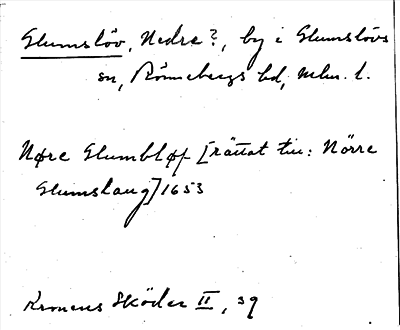 Glumslöv, Nedre?, by i Glumslövs
sn, Rönnebergs hd, Mlm. l.
Nøre Glumbløf [rättat till: Nörre
Glumslaug] 1653
Kronens Sköder II, 39